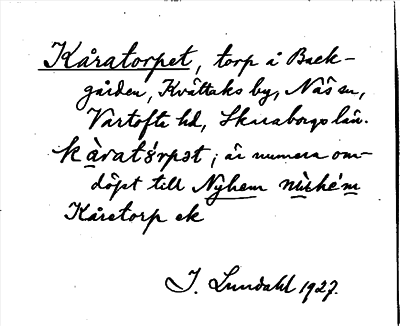 Kåratorpet, torp å Back-
gården, Kvättaks by, Näs sn,
Vartofta hd, Skaraborgs län.
kàratórpst, är numera om-
döpt till Nyhem nỳhém
Kåretorp ek
J. Lundahl 1927.